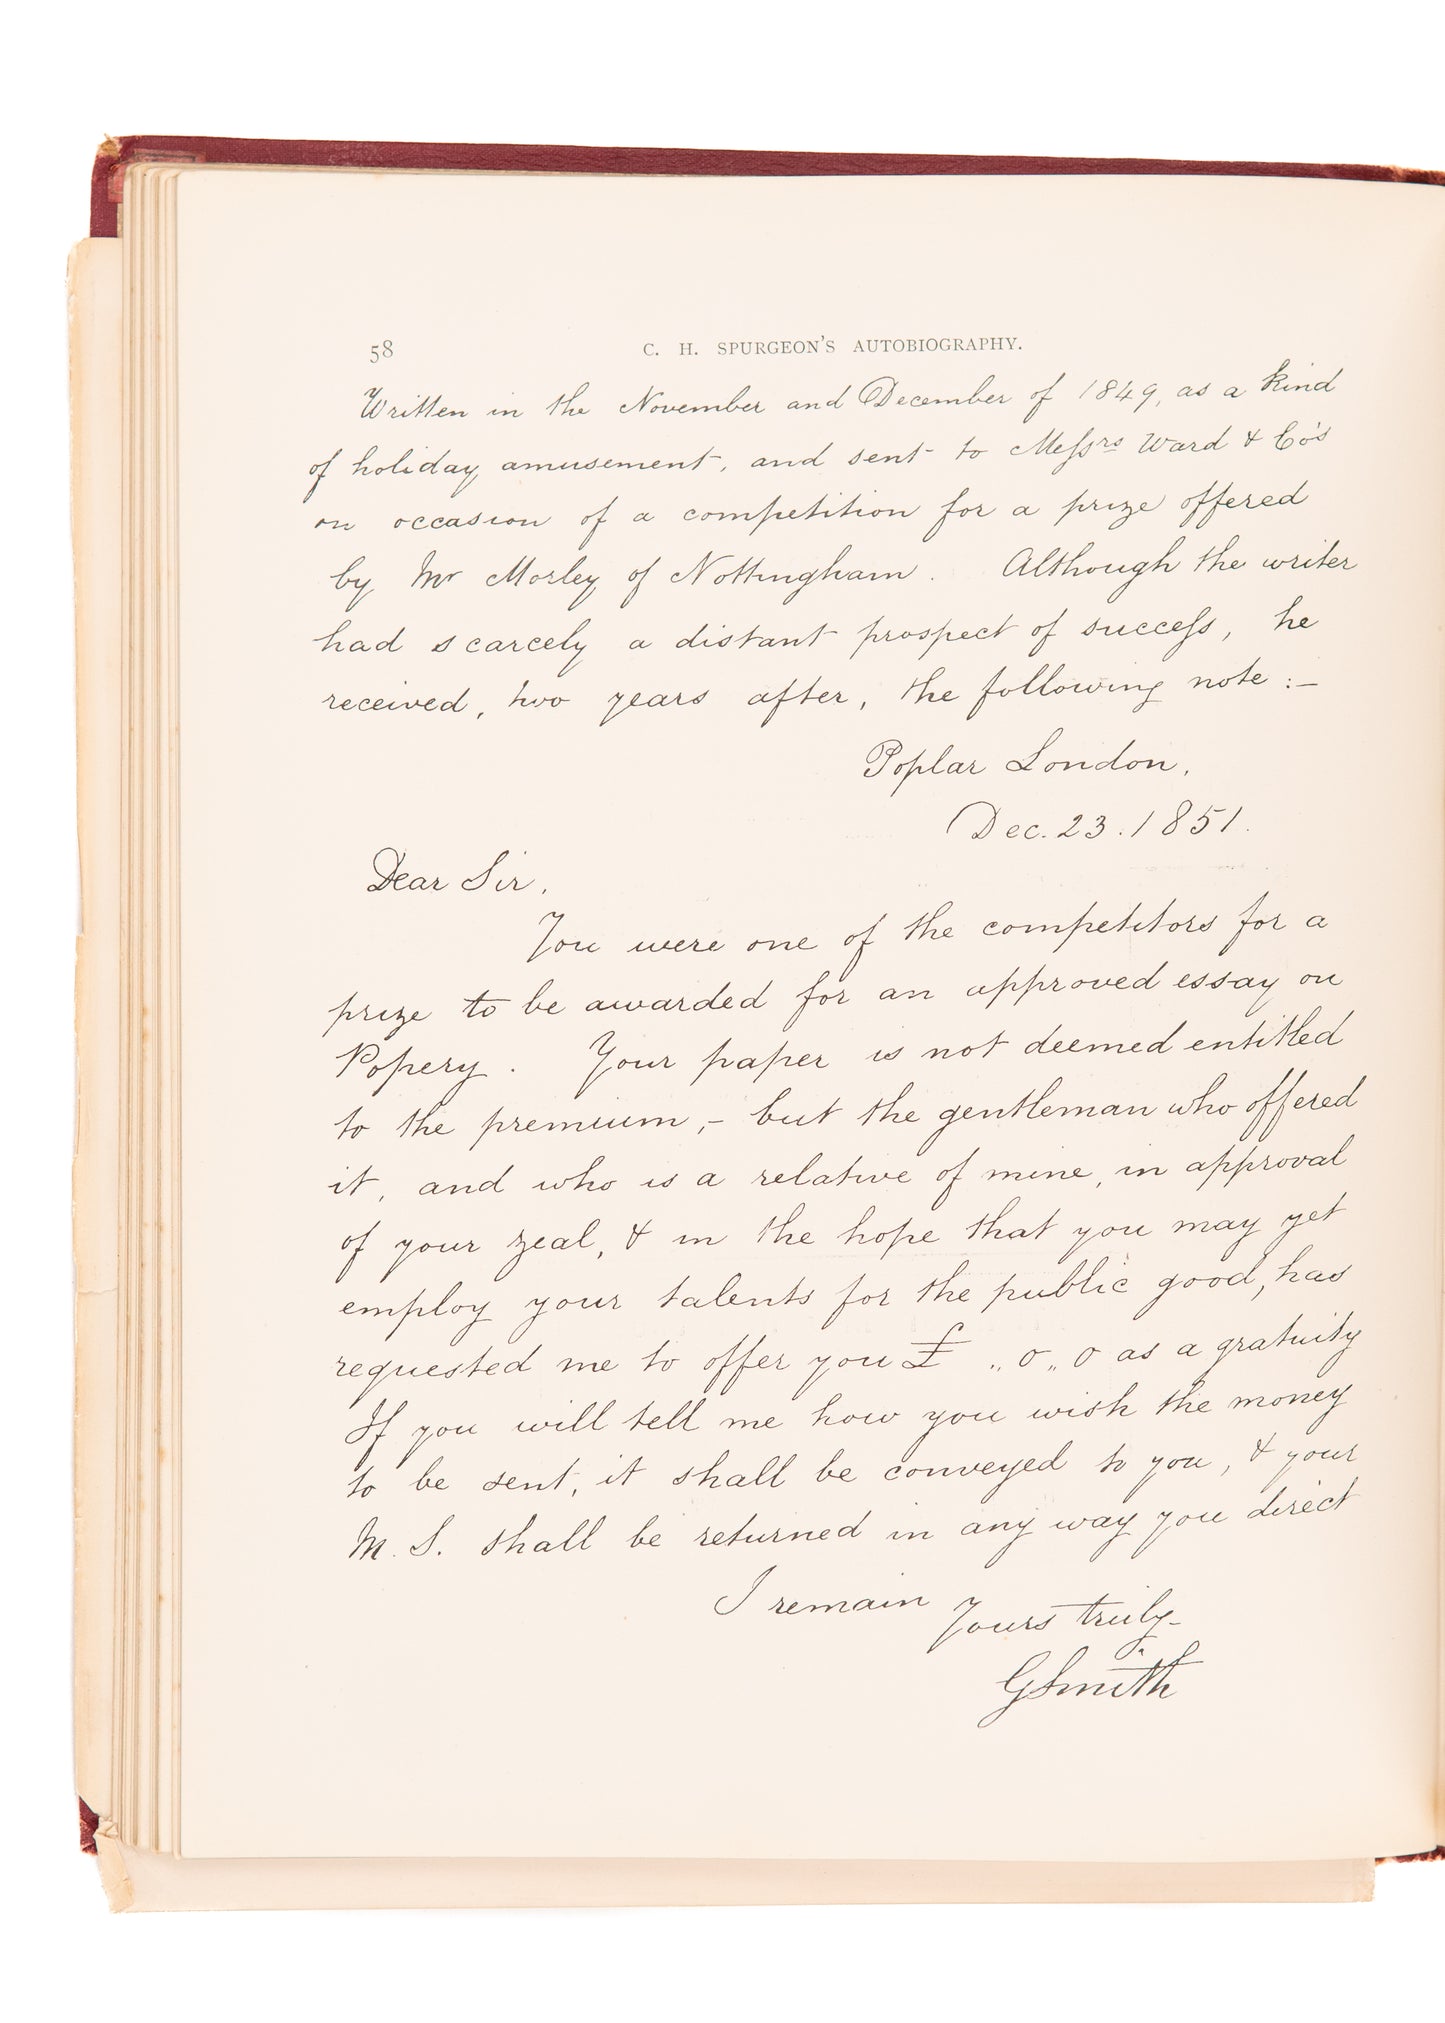 58 C. H. SPURGEON'S AUTOBIOGRAPHY.
Written in the November and December of 1849, as a kind
of holiday amusement, and sent to Messrs Ward & Co's
on occasion of a competition for a prize offered
by Mr Morley of Nottingham. Although the writer
had scarcely a distant prospect of success, he
received, two years after, the following note :—
Poplar London,
Dec. 23. 1851.
Dear Sir,
You were one of the competitors for a
prize to be awarded for an approved essay on
Popery. Your paper is not deemed entitled
to the premium,- but the gentleman who offered
it, and who is a relative of mine, in approval
of your zeal, & in the hope that you may yet
employ your talents for the public good, has
requested me to offer you £ „ 0 „ 0 as a gratuity
If you will tell me how you wish the money
to be sent, it shall be conveyed to you, & your
M. S. shall be returned in any way you direct
I remain
Yours truly-
G Smith